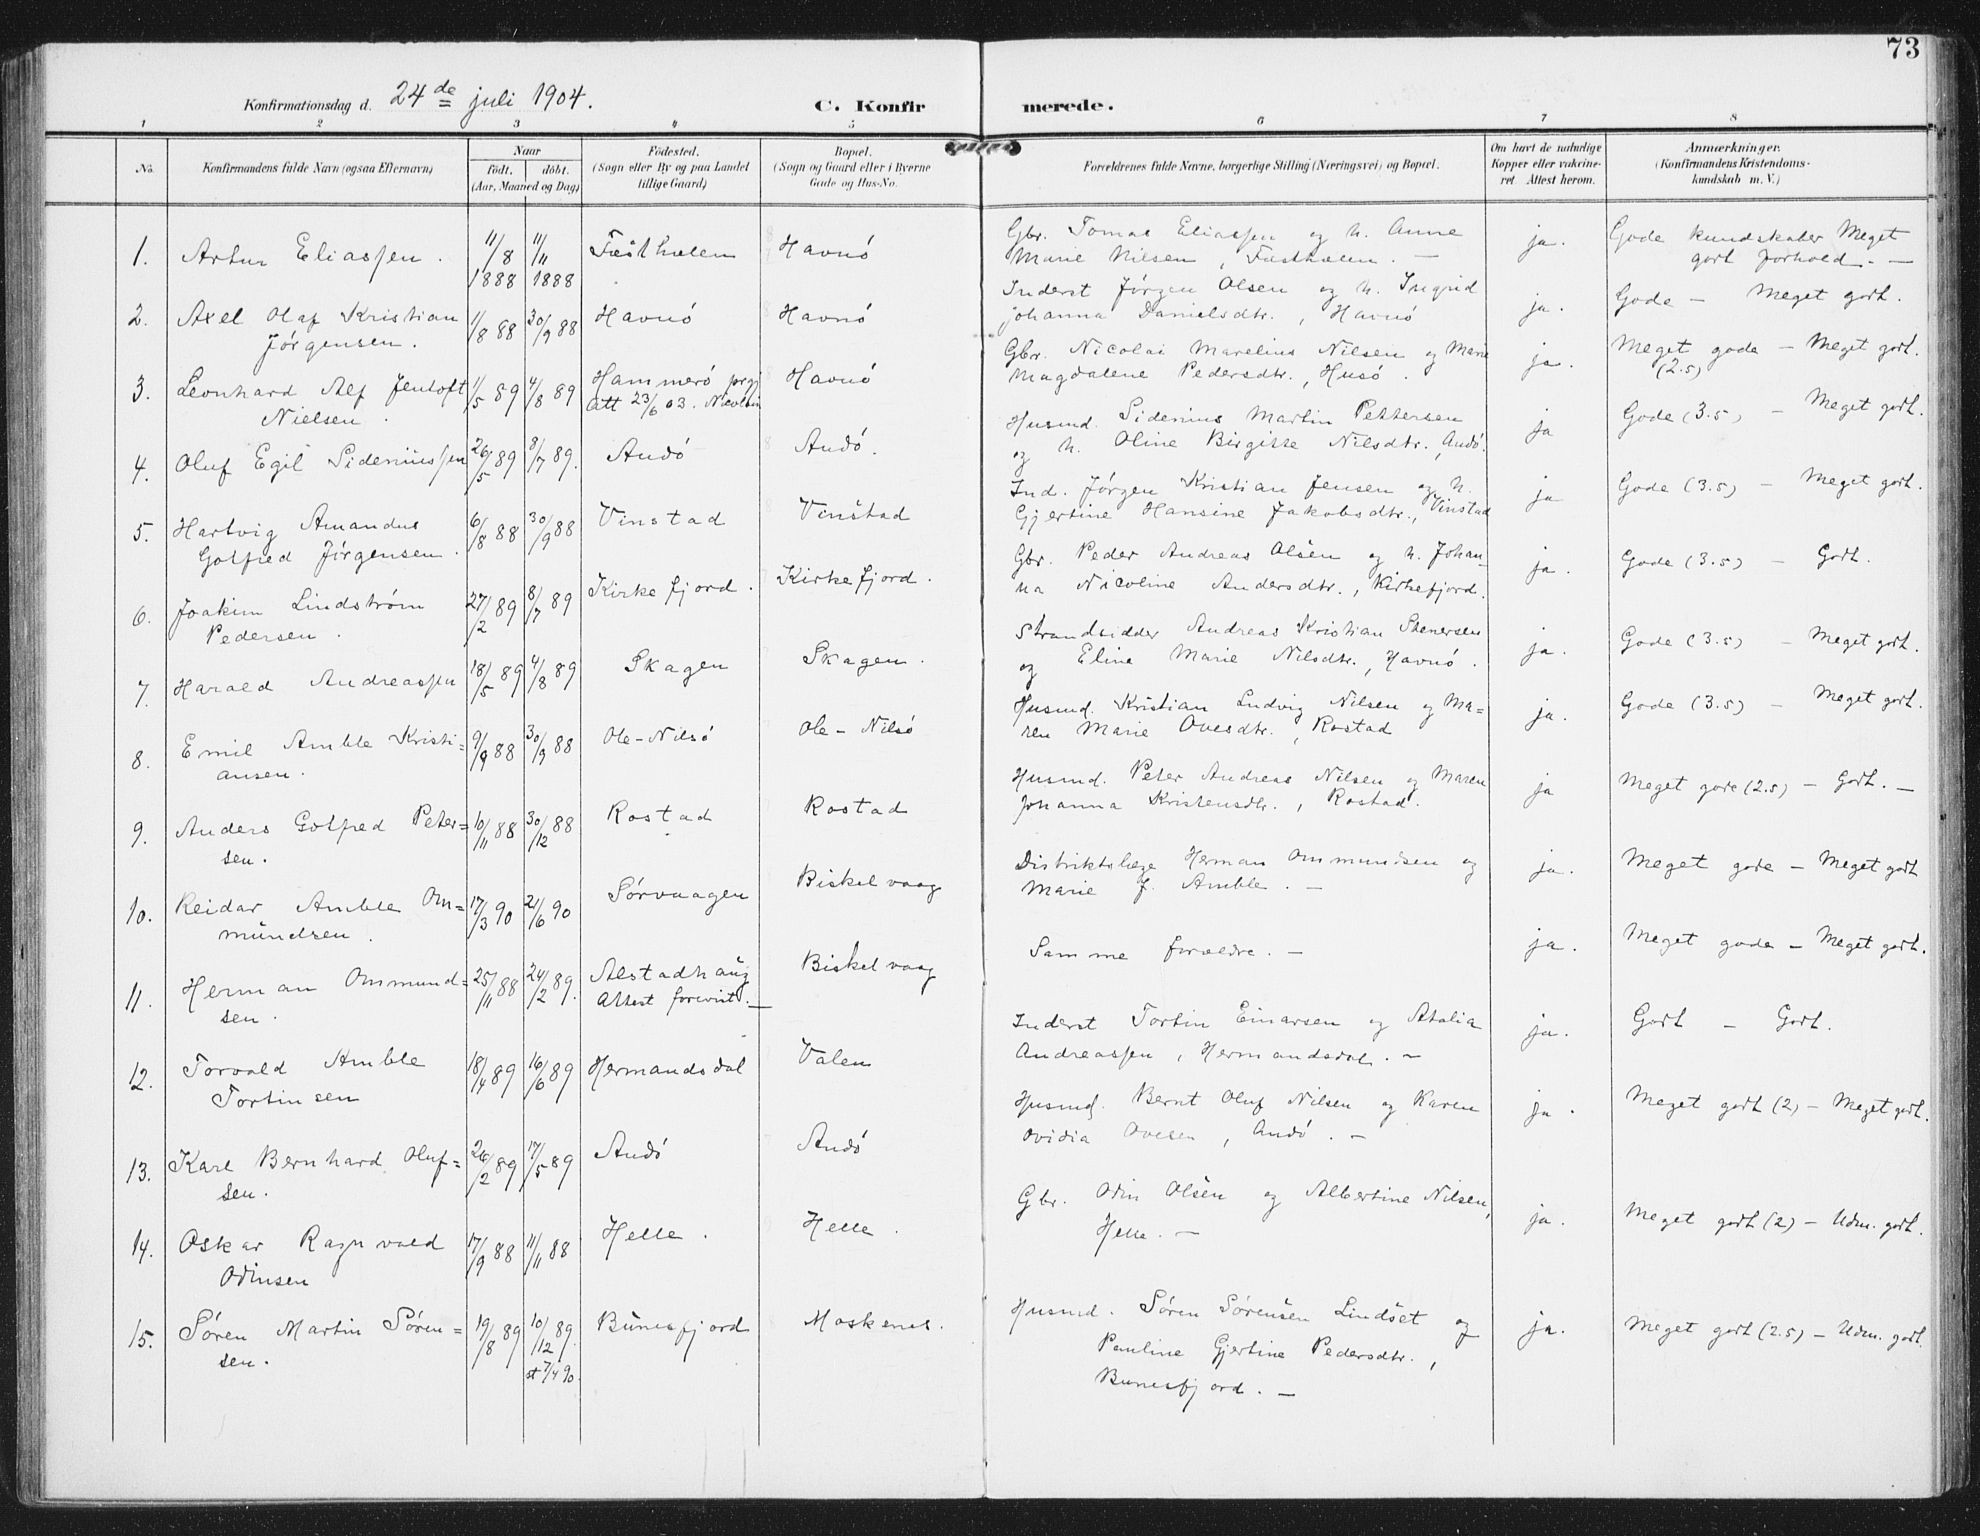 73
Konfirmationsdag d. 24de juli 1904. C. Konfirmerede.
1 2 3 4 5 6 7 8
No. Konfirmandens fulde Navn (ogsaa Efternavn) Naar født. døbt. (Aar, Maaned og Dag) Fødested. (Sogn eller By og paa Landet tillige Gaard) Bopæl. (Sogn og Gaard eller i Byerne Gade og Hus-No. Forældrenes fulde Navne, borgerlige Stilling (Næringsvei) og Bopæl. Om havt de naturlige Kopper eller vakcineret. Attest herom. Anmærkninger. (Konfirmandens Kristendomskundskab m. V.)
1. Artur Eliassen. 11/8 1888 11/11 1888 Festhælen Havnö Gbr. Tomas Eliassen og h. Anne ja. Gode kundskaber Meget
Marie Nilsen, Festhælen. — godt forhold. —
2. Axel Olaf Kristian 1/8 88 30/9 88 Havnö Havnö Inderst Jörgen Olsen og h. Ingrid ja. Gode — Meget godt.
Jörgensen. Johanna Danielsdtr., Havnö
3. Leonhard Alf Jentoft 1/5 89 4/8 89 Hammerö prgj Havnö Gbr. Nicolai Marelius Nilsen og Marie ja. Meget gode — Meget godt.
Nielsen. Att 23/6 03. Magdalene Pedersdtr., Husö. (2.5)
4. Oluf Egil Sideniussen 26/5 89 8/7 89. Andö Andö. Husmd. Sidenius Martin Pettersen ja Gode (3.5) — Meget godt.
og h. Oline Birgitte Nilsdtr., Andö.
5. Hartvig Amandus 6/8 88 30/9 88 Vinstad Vinstad Ind. Jörgen Kristian Jensen og h. ja Gode (3.5) — Meget godt.
Gotfred Jörgensen. Gjertine Hansine Jakobsdtr., Vinstad
6. Joakim Lindström 27/2 89 8/7 89 Kirkefjord. Kirkefjord. Gbr. Peder Andreas Olsen og h. Johan- ja. Gode (3.5) — Godt.
Pedersen. na Nicoline Andersdtr., Kirkefjord.
7. Harald Andreassen 18/5 89 4/8 89 Skagen Skagen. Strandsidder Andreas Kristian Stenersen ja. Gode (3.5) — Meget godt.
og Eline Marie Nilsdtr., Havnö.
8. Emil Amble Kristi= 9/9 88 30/9 88 Ole-Nilsö Ole-Nilsö Husmd. Kristian Ludvig Nilsen og Ma= ja. Gode (3.5) — Meget godt.
ansen. ren Marie Ovesdtr., Rostad
9. Anders Gotfred Peter= 10/11 88 30/12 88 Rostad Rostad Husmd. Peter Andreas Nilsen og Maren ja Meget gode (2.5) — Godt. —
sen. Johanna Kristensdtr., Rostad.
10. Reidar Amble Om= 17/3 90 21/6 90 Sörvaagen Biskelvaag Distriktslæge Herman Ommundsen og ja. Meget gode — Meget godt
mundsen. Marie J. Amble. —
11. Herman Ommund= 25/11 88 24/2 89. Alstadhaug Biskelvaag Samme forældre. — ja. Meget gode — Meget godt.
sen. Attest forevist. —
12. Torvald Amble 18/4 89 16/6 89 Hermandsdal Valen Inderst Tortin Einarsen og Atalia ja. Godt — Godt.
Tortinsen Andreassen, Hermandsdal. —
13. Karl Bernhard Oluf= 26/2 89 17/5 89 Andö Andö Husmd. Bernt Oluf Nilsen og Karen ja. Meget godt (2) — Meget godt.
sen. Ovidia Ovesen, Andö. —
14. Oskar Ragnvald 17/9 88 11/11 88 Helle. Helle. Gbr. Odin Olsen og Albertine Nilsen, ja. Meget godt (2) — Udm. godt.
Odinsen Helle. —
15. Sören Martin Sören= 19/8 89 10/12 89. Bunesfjord Moskenes. Husmd. Sören Sörensen Lindset og ja. Meget godt (2.5) — Udm. godt.
sen. st 7/4 90. Pauline Gjertine Pedersdtr.,
Bunesfjord. —